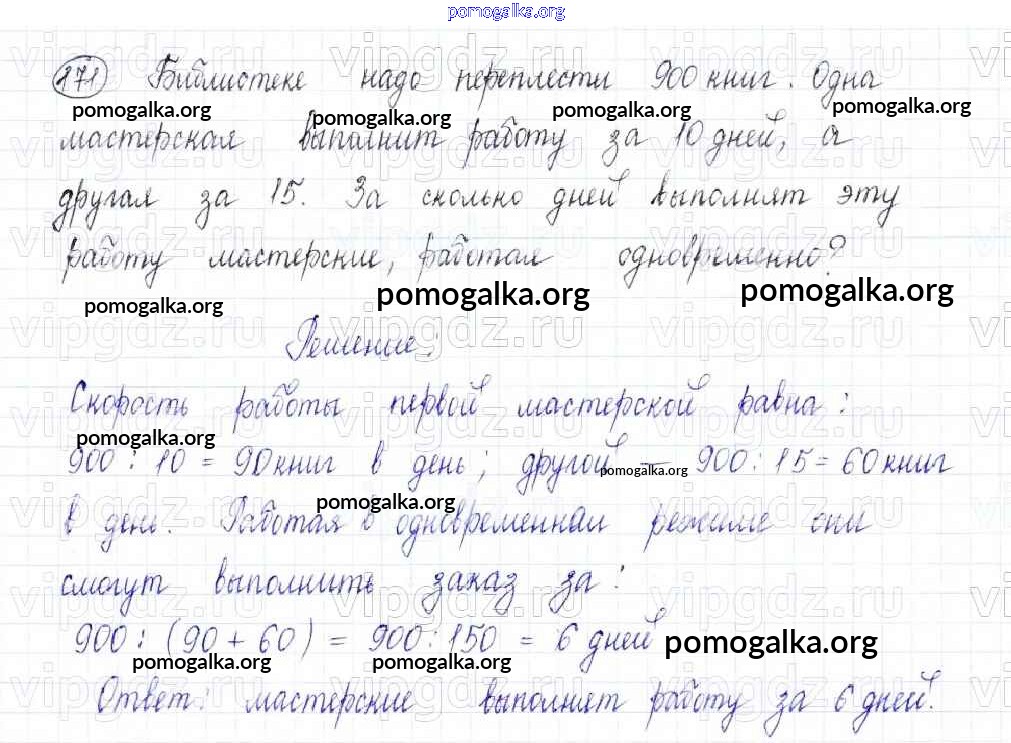 pomogalka.org
271 Библиотеке надо переплести 900 книг. Одна
pomogalka.org pomogalka.org pomogalka.org pomogalka.org
мастерская выполнит работу за 10 дней, а
другая за 15. За сколько дней выполнят эту
работу мастерские, работая одновременно?
pomogalka.org pomogalka.org pomogalka.org
Решение:
Скорость работы первой мастерской равна:
pomogalka.org
900 : 10 = 90 книг в день; другой – 900 : 15 = 60 книг
pomogalka.org
pomogalka.org
в день. Работая в одновременном режиме они
смогут выполнить заказ за:
900 : (90 + 60) = 900 : 150 = 6 дней
pomogalka.org pomogalka.org pomogalka.org
Ответ: мастерские выполнят работу за 6 дней.